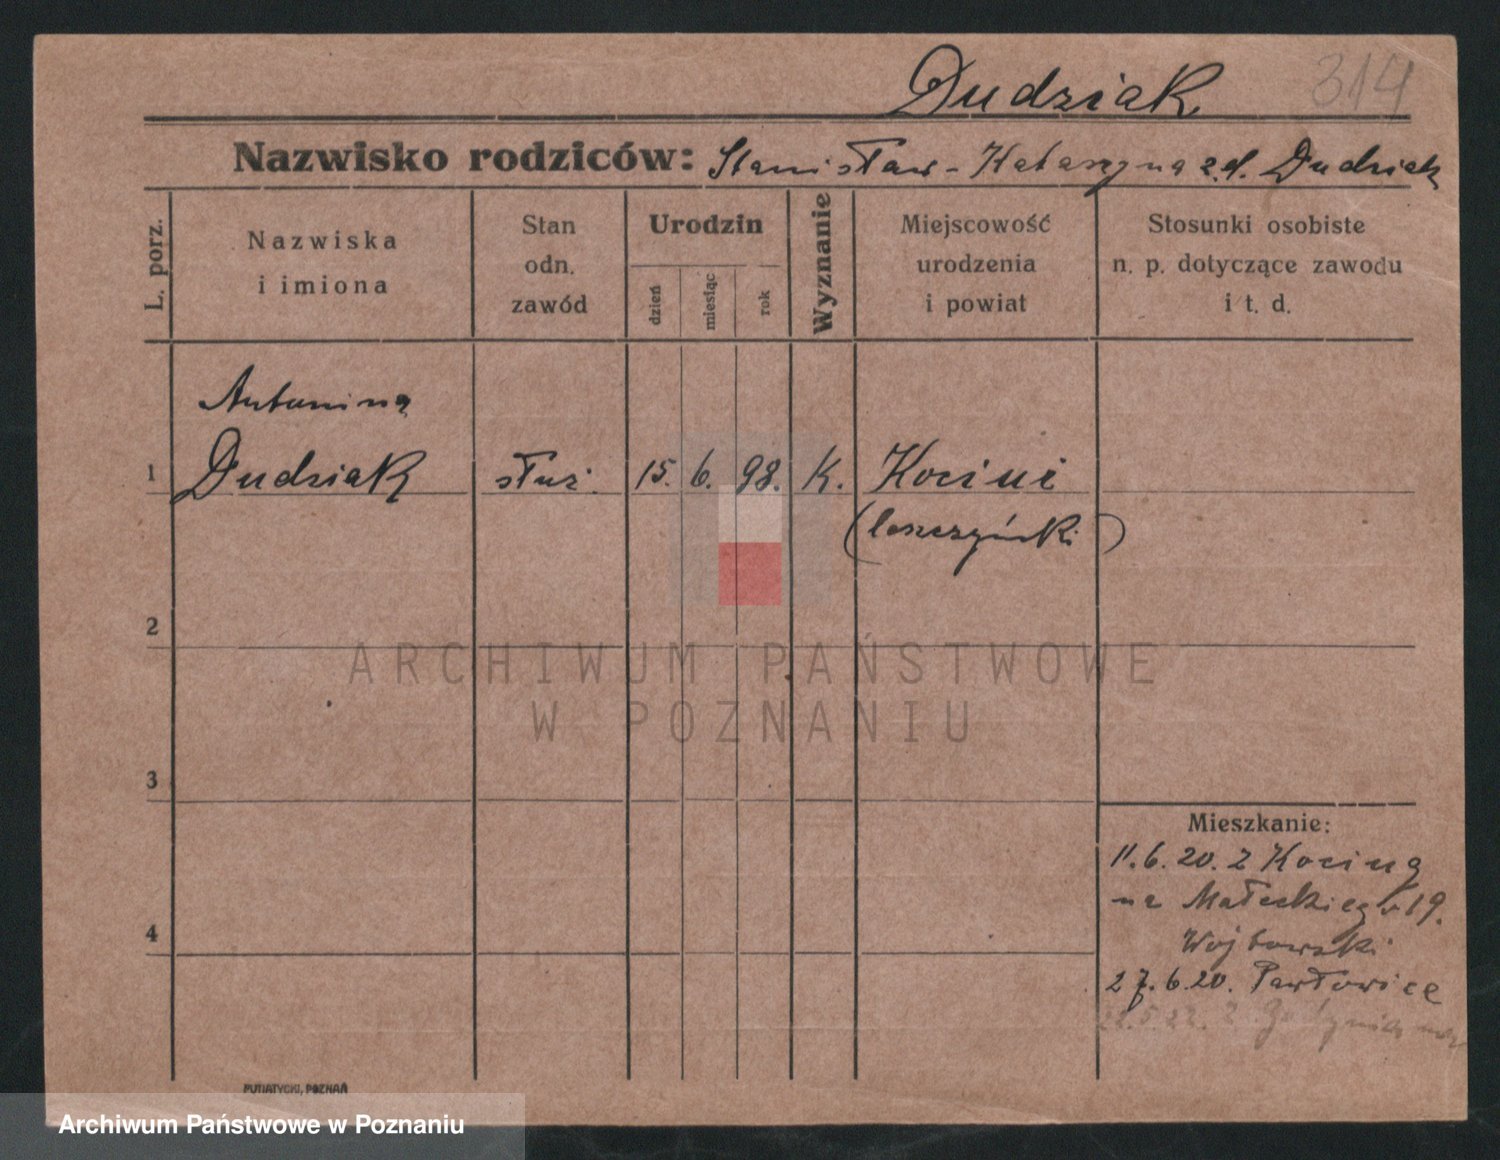 Dudziak 314
Nazwisko rodziców: Stanisław - Katarzyna z d. Dudziak
L. porz.
Nazwiska
i imiona
Stan
odn.
zawód
Urodzin
dzień
miesiąc
rok
Wyznanie
Miejscowość
urodzenia
i powiat
Stosunki osobiste
n. p. dotyczące zawodu
i t. d.
Antonina
1 Dudziak służ. 15. 6. 98. K.
(leszczyński)
2
ARCHIWUM PAŃSTWOWE
W POZNANIU
3
Mieszkanie:
11.6.20. z
na Małeckiego 19.
4
27.6.20. Pawłowice
PUTIATYCKI, POZNAŃ
Archiwum Państwowe w Poznaniu